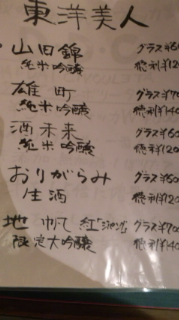 東洋美人
山田錦 グラス¥60
純米吟醸 徳利¥120
雄町 グラス¥70
純米吟醸 徳利¥140
酒未来 グラス¥60
純米吟醸 徳利¥120
おりがらみ グラス¥60
生酒 徳利¥120
地 帆 紅 グラス¥70
限定大吟醸 徳利¥140